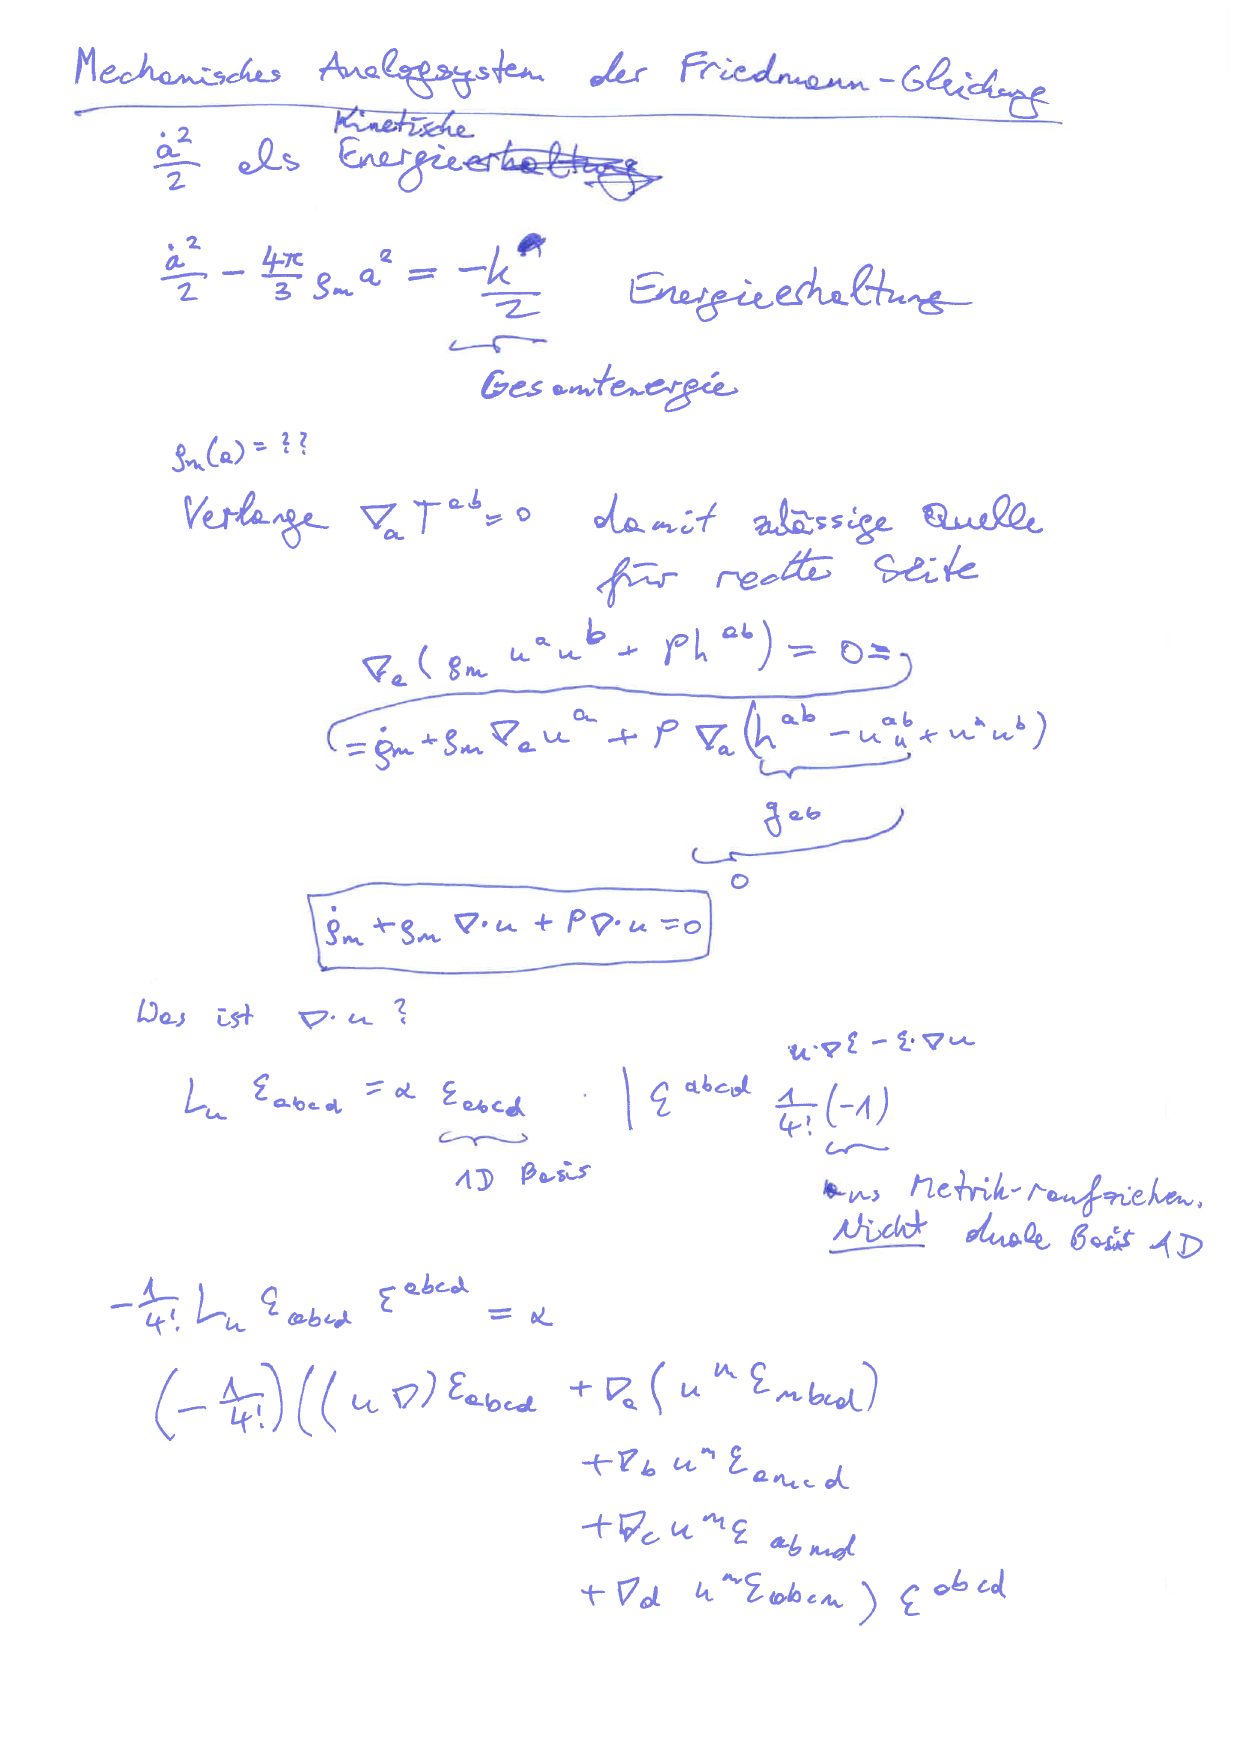 Mechanisches Analogsystem der Friedmann-Gleichung
ȧ²/2 als Kinetische Energieerhaltung
ȧ²/2 − 4π/3 ρₘ a² = −k/2 Energieerhaltung
Gesamtenergie
ρₘ(a) = ??
Verlange ∇ₐ Tᵃᵇ = 0 damit zulässige Quelle
für rechte Seite
∇ₐ(ρₘ uᵃuᵇ + P hᵃᵇ) = 0 =
= ρ̇ₘ + ρₘ ∇ₐ uᵃ + P ∇ₐ(hᵃᵇ − uᵃᵇu + uᵃuᵇ)
gab
0
ρ̇ₘ + ρₘ ∇·u + P∇·u = 0
Was ist ∇·u ?
u·∇ε − ε·∇u
Lᵤ εabcd = α εabcd · | εᵃᵇᶜᵈ 1/4! (−1)
1D Basis
aus Metrik-raufziehen.
Nicht duale Basis 1D
−1/4! Lᵤ εabcd εᵃᵇᶜᵈ = α
(−1/4!)((u∇)εabcd + ∇ₐ(uᵐ εmbcd)
+∇b uᵐ εamcd
+∇c uᵐ ε abmd
+∇d uᵐ εabcm) εᵃᵇᶜᵈ